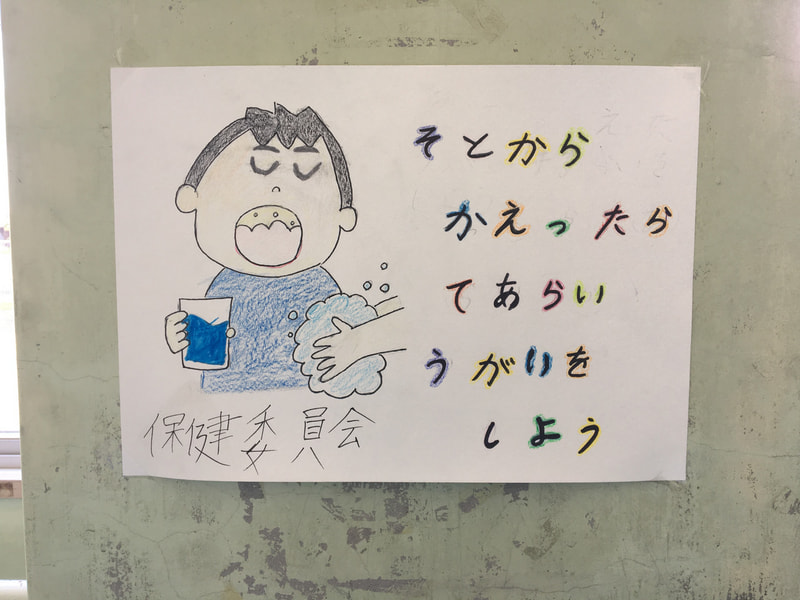 そとから
かえったら
てあらい
うがいを
しよう
保健委員会